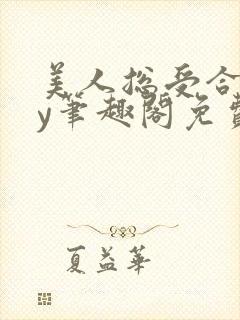 美人总受合
y笔趣阁免费
夏益华